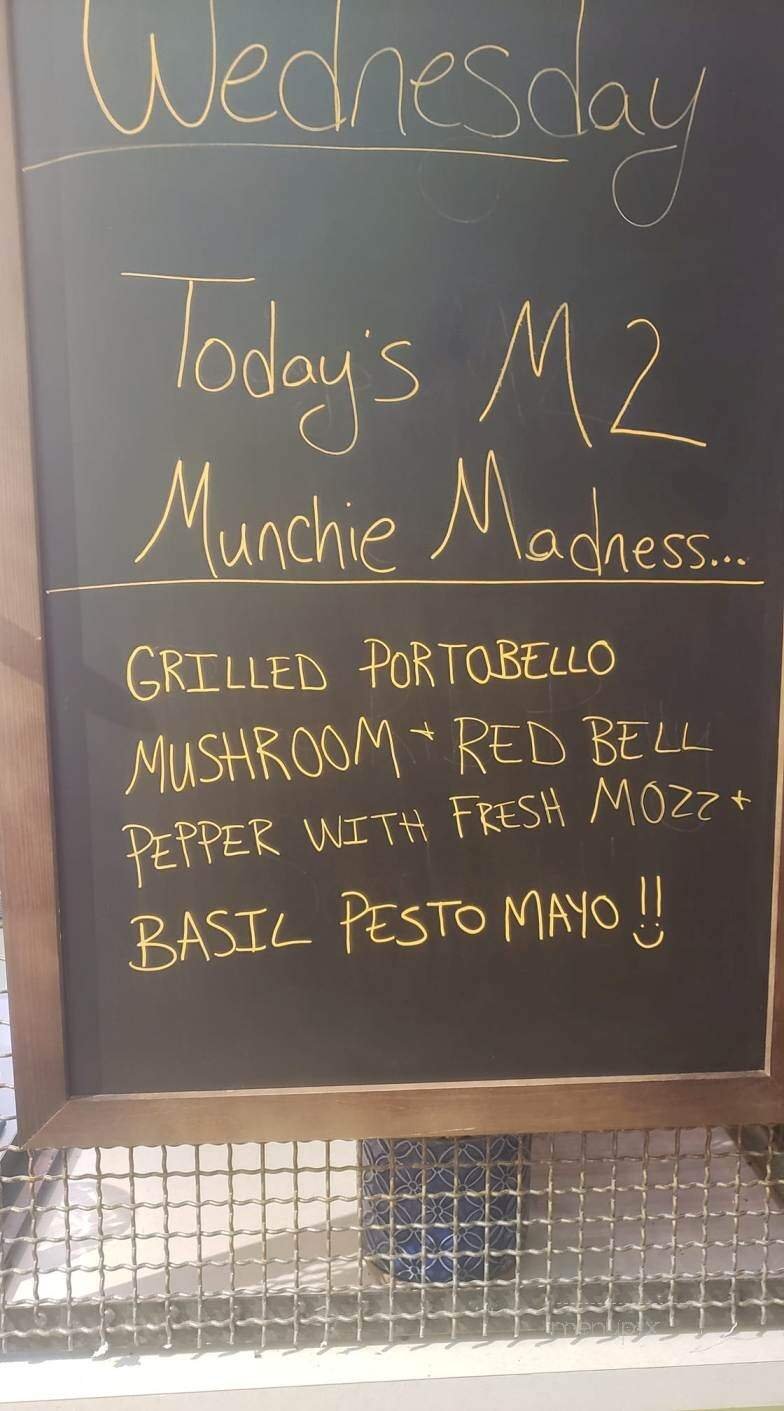 Wednesday
Today's M2
Munchie Madness...
GRILLED PORTOBELLO
MUSHROOM + RED BELL
PEPPER WITH FRESH MOZZ +
BASIL PESTO MAYO !!
menupix